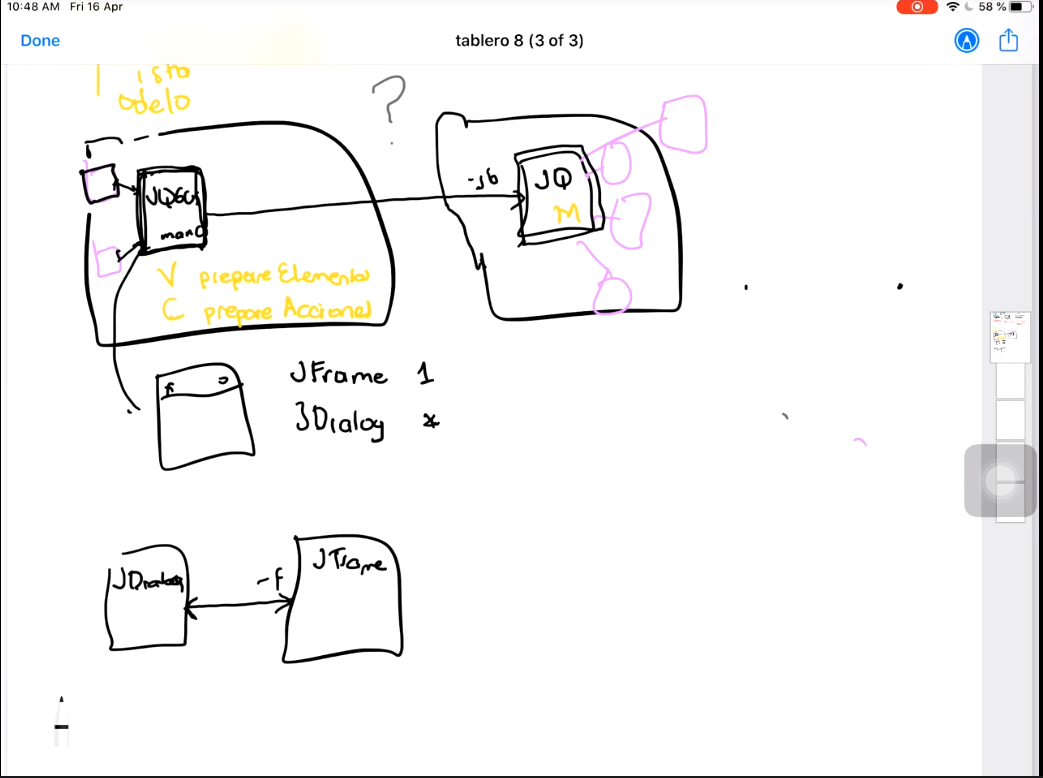 10:48 AM Fri 16 Apr
58 %
Done
tablero 8 (3 of 3)
ista
odelo
?
JQGUI
main()
-jb
JQ
M
V prepare Elementos
C prepare Acciones
JFrame 1
JDialog *
JDialog
-f
JFrame